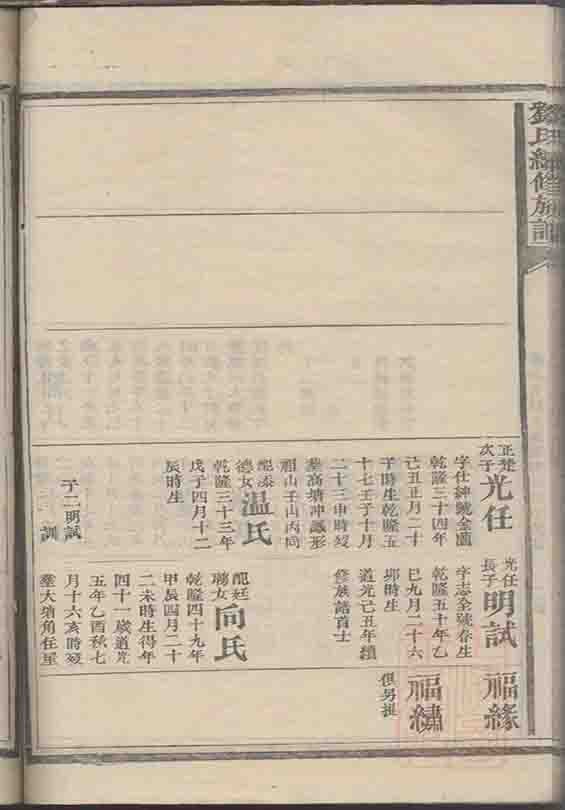 氏續修族譜
正楚次子
光任
字仕紳號金園
乾隆三十四年
己丑正月二十
子時生乾隆五
十七壬子十月
二十三申時歿
葬高塘冲
形
祖山壬山丙向
配添德女
温氏
乾隆三十三年
戊子四月十二
辰時生
子二明試
訓
光任長子
明試
字志全號春生
乾隆五十年乙
巳九月二十六
卯時生
道光己丑年續
修族譜首士
配廷聘女
向氏
乾隆四十九年
甲辰四月二十
二未時生得年
四十一歲道光
五年乙酉秋七
月十六亥時歿
葬大塘角任星
福緣
福繡
俱另提